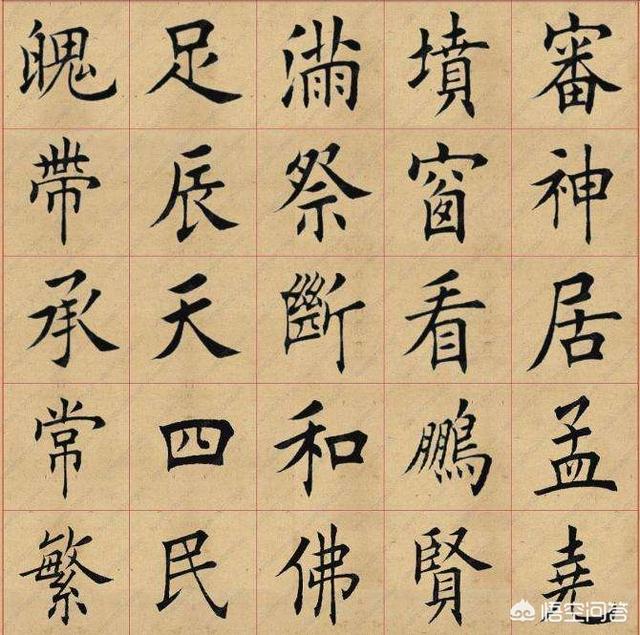 魄足滿墳審
帶辰祭窗神
承天斷看居
常四和鵬孟
繁民佛賢堯
悟空问答